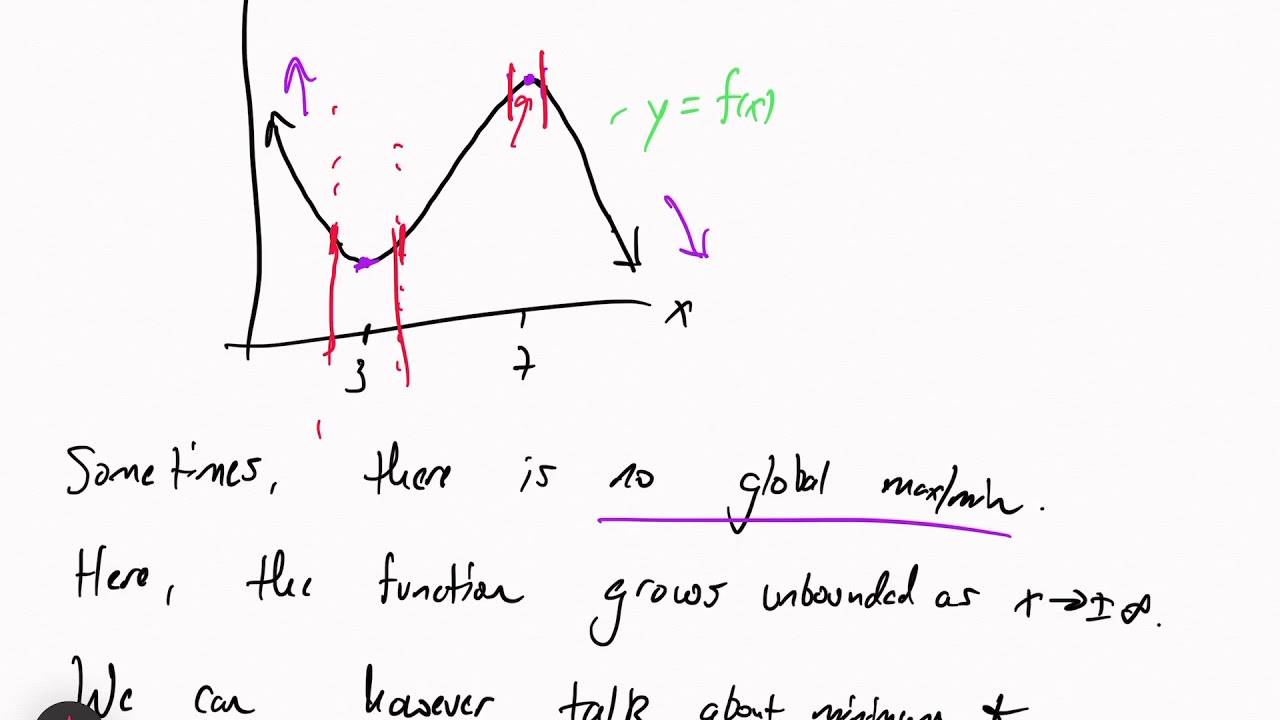 y = f(x)
x
3 7
Sometimes, there is no global max/min.
Here, the function grows unbounded as x→±∞.
We can however talk about minimum &